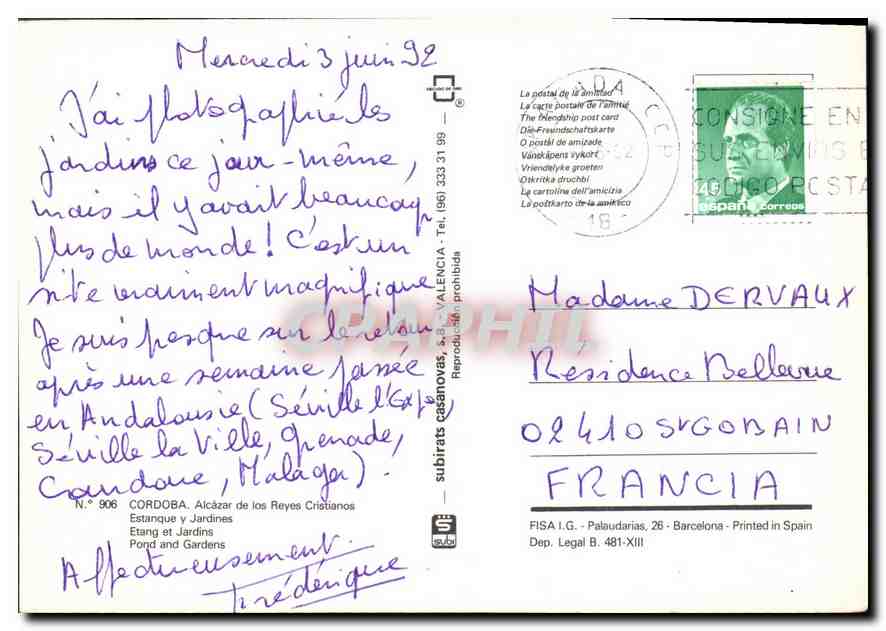 Mercredi 3 juin 92
J'ai photographié les
jardins ce jour-même,
mais il y avait beaucoup
plus de monde! C'est un
site vraiment magnifique
Je suis presque sur le retour
après une semaine passée
en Andalousie (Séville l'Expo,
Séville la Ville, Grenade,
Cordoue, Malaga).
N.° 906 CORDOBA. Alcázar de los Reyes Cristianos
Estanque y Jardines
Etang et Jardins
Pond and Gardens
Affectueusement.
Frédérique
subirats casanovas, s.a. - VALENCIA - Tel. (96) 333 31 99
Reproducción prohibida
®
subi
La postal de la amistad
La carte postale de l'amitié
The friendship post card
Die Freundschaftskarte
O postal de amizade
Vänskapens vykort
Vriendelyke groeten
Otkritka druchbi
La cartolina dell'amicizia
La postkarto de la amikeco
CONSIGNE EN
SUS ENVIOS E
CODIGO POSTA
españa correos
Madame DERVAUX
Résidence Bellevue
02410 St GOBAIN
FRANCIA
FISA I.G. - Palaudarias, 26 - Barcelona - Printed in Spain
Dep. Legal B. 481-XIII
CPAPHIL